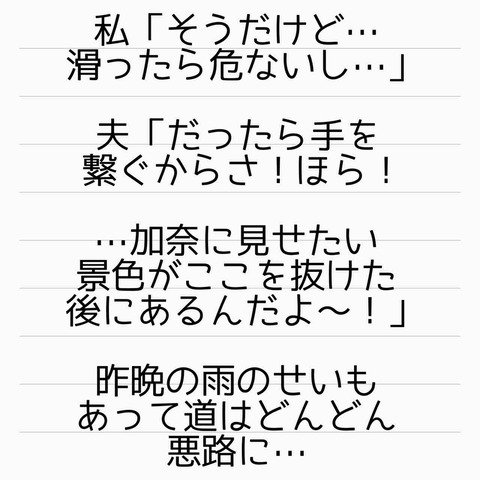 私「そうだけど…
滑ったら危ないし…」
夫「だったら手を
繋ぐからさ！ほら！
…加奈に見せたい
景色がここを抜けた
後にあるんだよ〜！」
昨晩の雨のせいも
あって道はどんどん
悪路に…